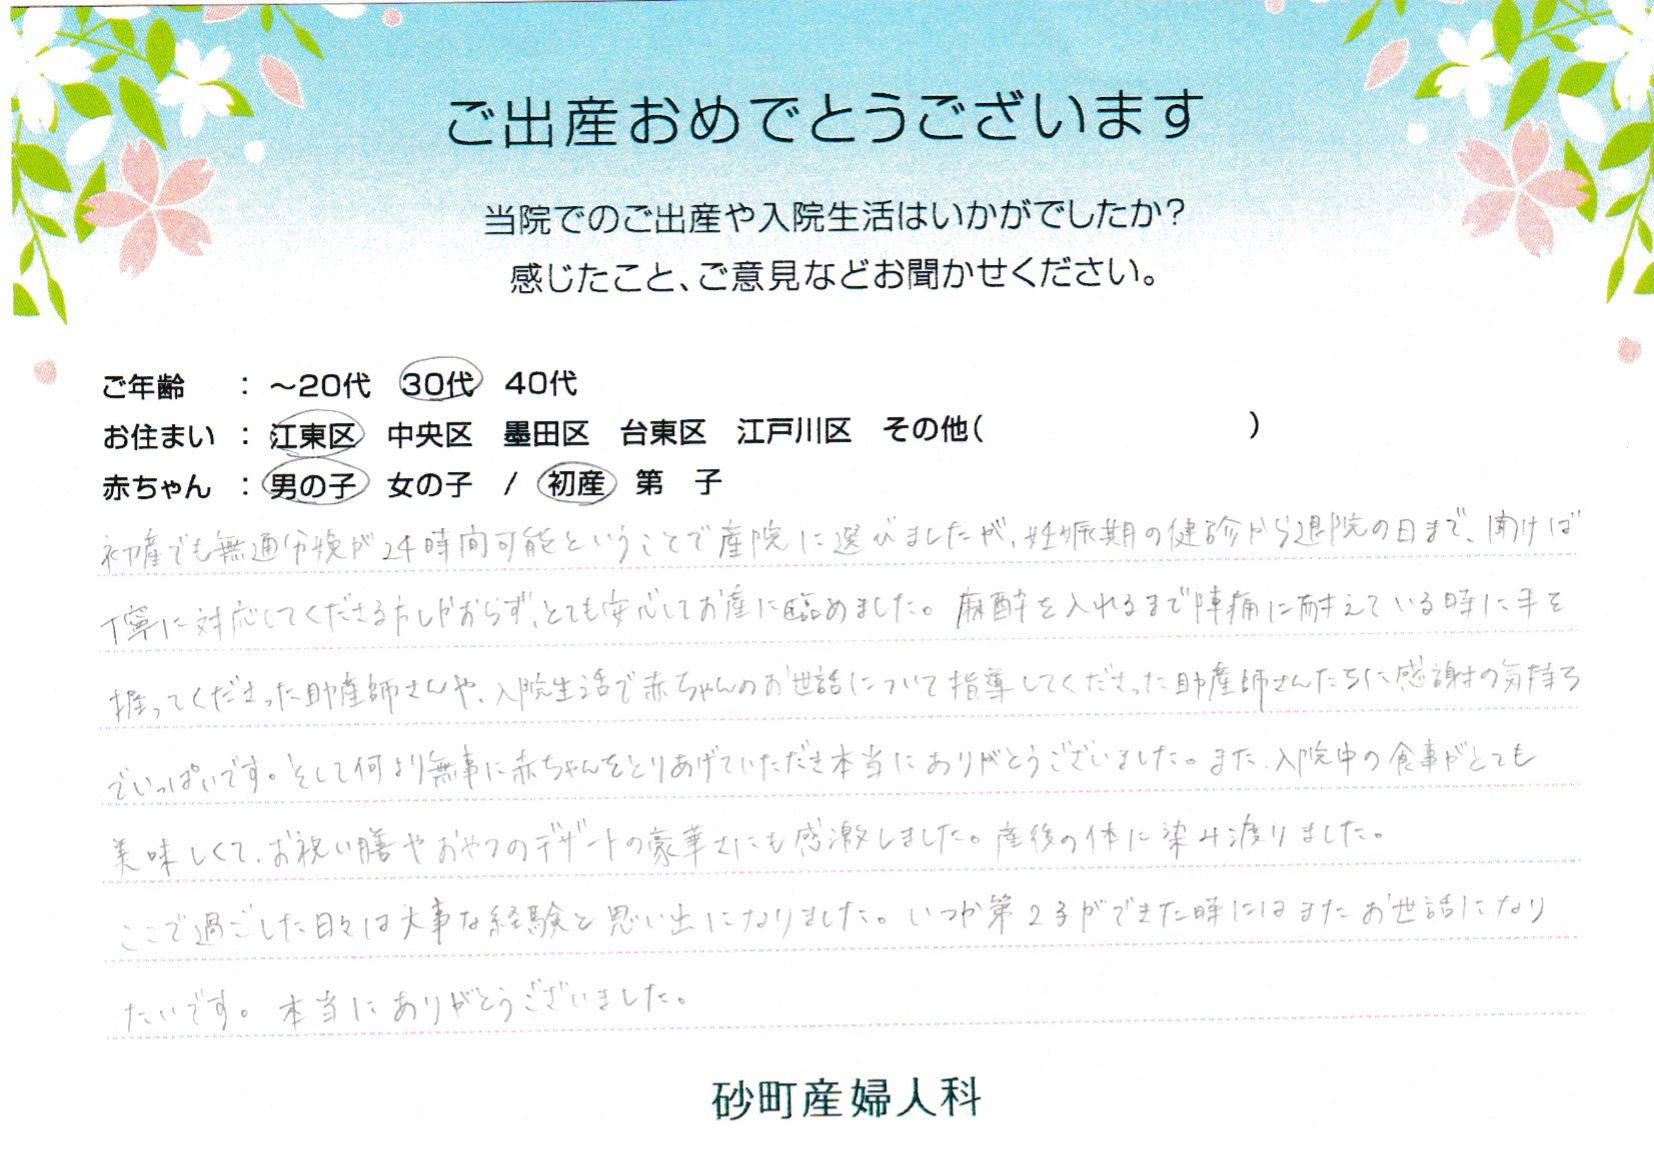 ご出産おめでとうございます
当院でのご出産や入院生活はいかがでしたか？
感じたこと、ご意見などお聞かせください。
ご年齢 ： ～20代 30代 40代
お住まい ： 江東区 中央区 墨田区 台東区 江戸川区 その他( )
赤ちゃん ： 男の子 女の子 / 初産 第 子
初産でも無通分娩が24時間可能ということで産院に選びましたが、妊娠期の健診から退院の日まで、聞けば
丁寧に対応してくださる方しかおらず、とても安心してお産に臨めました。麻酔を入れるまで陣痛に耐えている時に手を
握ってくださった助産師さんや、入院生活で赤ちゃんのお世話について指導してくださった助産師さんたちに感謝の気持ち
でいっぱいです。そして何より無事に赤ちゃんをとりあげていただき本当にありがとうございました。また、入院中の食事がとても
美味しくて、お祝い膳やおやつのデザートの豪華さにも感激しました。産後の体に染み渡りました。
ここで過ごした日々は大事な経験と思い出になりました。いつか第2子ができた時にはまたお世話になり
たいです。本当にありがとうございました。
砂町産婦人科